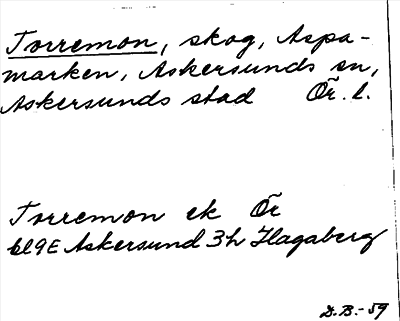 Torremon, skog, Aspa-
marken, Askersunds sn,
Askersunds stad Ör. l.
Torremon ek Ör
bl 9E Askersund 3h Hagaberg
D.B.-59